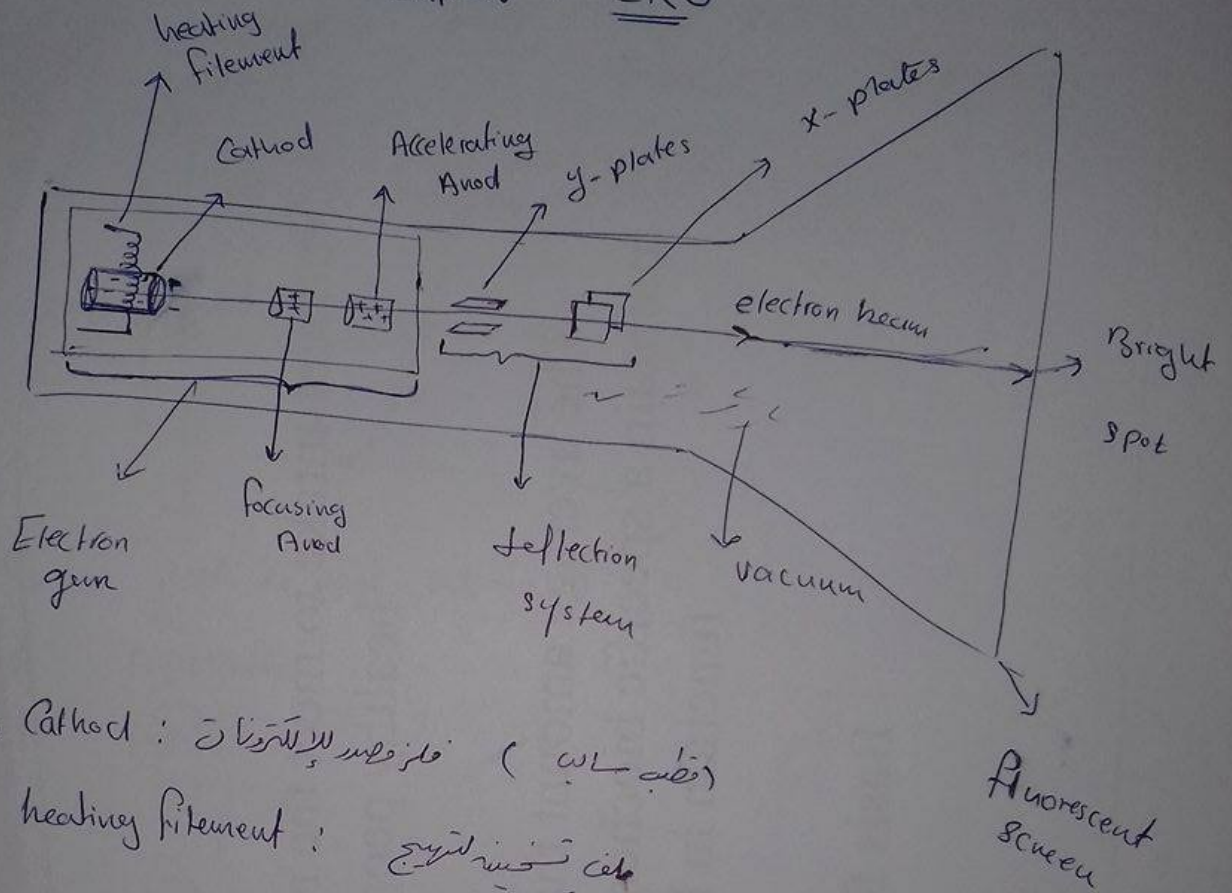 CRO
heating
filement
Cathod
Accelerating
Anod
y-plates
x-plates
electron beam
Bright
spot
Electron
gun
focusing
Anod
deflection
system
vacuum
fluorescent
screen
Cathod : فلز مصدر للإلكترونات (قطب سالب)
heating filement : ملف تسخين لتهييج